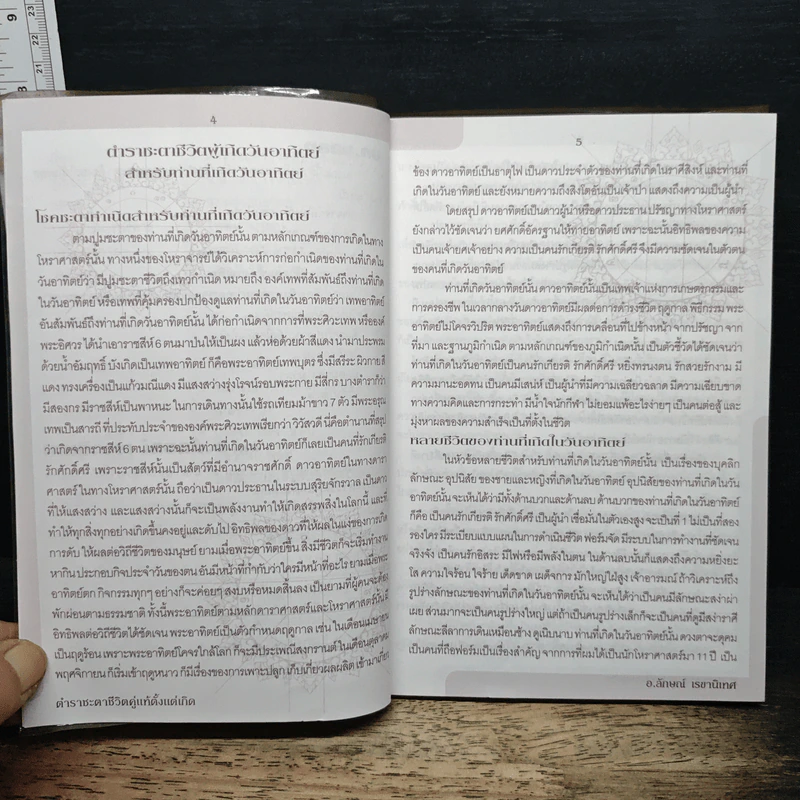 9
8
23
22
21
4
ตำราชะตาชีวิตผู้เกิดวันอาทิตย์
สำหรับท่านที่เกิดวันอาทิตย์
โชคชะตากำเนิดสำหรับท่านที่เกิดวันอาทิตย์
ตามปูมชะตาของท่านที่เกิดวันอาทิตย์นั้น ตามหลักเกณฑ์ของการเกิดในทาง
โหราศาสตร์นั้น ทางหนึ่งของโหราจารย์ได้วิเคราะห์การก่อกำเนิดของท่านที่เกิดใน
วันอาทิตย์ว่า มีปูมชะตาชีวิตถึงเทวกำเนิด หมายถึง องค์เทพที่สัมพันธ์ถึงท่านที่เกิด
ในวันอาทิตย์ หรือเทพที่คุ้มครองปกป้องดูแลท่านที่เกิดในวันอาทิตย์ว่า เทพอาทิตย์
อันสัมพันธ์ถึงท่านที่เกิดวันอาทิตย์นั้น ได้ก่อกำเนิดจากการที่พระศิวะเทพ หรือองค์
พระอิศวร ได้นำเอาราชสีห์ 6 ตนมาป่นให้เป็นผง แล้วห่อด้วยผ้าสีแดง นำมาประพรม
ด้วยน้ำอัมฤทธิ์ บังเกิดเป็นเทพอาทิตย์ ก็คือพระอาทิตย์เทพบุตร ซึ่งมีสรีระ ผิวกายสี
แดง ทรงเครื่องเป็นแก้วมณีแดง มีแสงสว่างรุ่งโรจน์รอบพระกาย มีสี่กร บางตำราก็ว่า
มีสองกร มีราชสีห์เป็นพาหนะ ในการเดินทางนั้นใช้รถเทียมม้าขาว 7 ตัว มีพระอรุณ
เทพเป็นสารถี ที่ประทับประจำขององค์พระศิวะเทพเรียกว่า วิวัสวดี นี่คือตำนานที่สรุป
ว่าเกิดจากราชสีห์ 6 ตน เพราะฉะนั้นท่านที่เกิดในวันอาทิตย์ก็เลยเป็นคนที่รักเกียรติ
รักศักดิ์ศรี เพราะราชสีห์นั้นเป็นสัตว์ที่มีอำนาจราชศักดิ์ ดาวอาทิตย์ในทางดารา
ศาสตร์ ในทางโหราศาสตร์นั้น ถือว่าเป็นดาวประธานในระบบสุริยจักรวาล เป็นดาว
ที่ให้แสงสว่าง และแสงสว่างนั้นก็จะเป็นพลังงานทำให้เกิดสรรพสิ่งในโลกนี้ และที่
ทำให้ทุกสิ่งทุกอย่างเกิดขึ้นคงอยู่และดับไป อิทธิพลของดาวที่ให้ผลในแง่ของการเกิด
การดับ ให้ผลต่อวิถีชีวิตของมนุษย์ ยามเมื่อพระอาทิตย์ขึ้น สิ่งมีชีวิตก็จะเริ่มทำงาน
หากิน ประกอบกิจประจำวันของตน อันมีหน้าที่กำกับว่าใครมีหน้าที่อะไร ยามเมื่อพระ
อาทิตย์ตก กิจกรรมทุกๆ อย่างก็จะค่อยๆ สงบหรือหมดสิ้นลง เป็นยามที่ผู้คนจะต้อง
พักผ่อนตามธรรมชาติ ทั้งนี้พระอาทิตย์ตามหลักดาราศาสตร์และโหราศาสตร์นั้น มี
อิทธิพลต่อวิถีชีวิตได้ชัดเจน พระอาทิตย์เป็นตัวกำหนดฤดูกาล เช่น ในเดือนเมษายน
เป็นฤดูร้อน เพราะพระอาทิตย์โคจรใกล้โลก ก็จะมีประเพณีสงกรานต์ ในเดือนตุลาคม
พฤศจิกายน ก็เริ่มเข้าฤดูหนาว ก็มีเรื่องของการเพาะปลูก เก็บเกี่ยวผลผลิต เข้ามาเกี่ยว
ตำราชะตาชีวิตคู่แท้ตั้งแต่เกิด
5
ข้อง ดาวอาทิตย์เป็นธาตุไฟ เป็นดาวประจำตัวของท่านที่เกิดในราศีสิงห์ และท่านที่
เกิดในวันอาทิตย์ และยังหมายความถึงสิงโตอันเป็นเจ้าป่า แสดงถึงความเป็นผู้นำ
โดยสรุป ดาวอาทิตย์เป็นดาวผู้นำหรือดาวประธาน ปรัชญาทางโหราศาสตร์
ยังกล่าวไว้ชัดเจนว่า ยศศักดิ์อัครฐานให้ทายอาทิตย์ เพราะฉะนั้นอิทธิพลของความ
เป็นคนเจ้ายศเจ้าอย่าง ความเป็นคนรักเกียรติ รักศักดิ์ศรี จึงมีความชัดเจนในตัวตน
ของคนที่เกิดวันอาทิตย์
ท่านที่เกิดวันอาทิตย์นั้น ดาวอาทิตย์นั้นเป็นเทพเจ้าแห่งการเกษตรกรรมและ
การครองชีพ ในเวลากลางวันดาวอาทิตย์มีผลต่อการดำรงชีวิต ฤดูกาล พิธีกรรม พระ
อาทิตย์ไม่โคจรวิปริต พระอาทิตย์แสดงถึงการเคลื่อนที่ไปข้างหน้า จากปรัชญา จาก
ที่มา และฐานภูมิกำเนิด ตามหลักเกณฑ์ของภูมิกำเนิดนั้น เป็นตัวชี้วัดได้ชัดเจนว่า
ท่านที่เกิดในวันอาทิตย์นั้นเป็นคนรักเกียรติ รักศักดิ์ศรี หยิ่งทรนงตน รักสวยรักงาม มี
ความมานะอดทน เป็นคนมีเสน่ห์ เป็นผู้นำที่มีความเฉลียวฉลาด มีความเฉียบขาด
ทางความคิดและการกระทำ มีน้ำใจนักกีฬา ไม่ยอมแพ้อะไรง่ายๆ เป็นคนต่อสู้ และ
มุ่งหาผลของความสำเร็จเป็นที่ตั้งในชีวิต
หลายชีวิตของท่านที่เกิดในวันอาทิตย์
ในหัวข้อหลายชีวิตสำหรับท่านที่เกิดในวันอาทิตย์นั้น เป็นเรื่องของบุคลิก
ลักษณะ อุปนิสัย ของชายและหญิงที่เกิดในวันอาทิตย์ อุปนิสัยของท่านที่เกิดในวัน
อาทิตย์นั้น จะเห็นได้ว่ามีทั้งด้านบวกและด้านลบ ด้านบวกของท่านที่เกิดในวันอาทิตย์
ก็คือ เป็นคนรักเกียรติ รักศักดิ์ศรี เป็นผู้นำ เชื่อมั่นในตัวเองสูง จะเป็นที่ 1 ไม่เป็นที่สอง
รองใคร มีระเบียบแบบแผนในการดำเนินชีวิต ฟอร์มจัด มีระบบในการทำงานที่ชัดเจน
จริงจัง เป็นคนรักอิสระ มีไฟหรือมีพลังในตน ในด้านลบนั้นก็แสดงถึงความหยิ่งยะ
โส ความใจร้อน ใจร้าย เด็ดขาด เผด็จการ มักใหญ่ใฝ่สูง เจ้าอารมณ์ ถ้าวิเคราะห์ถึง
รูปร่างลักษณะของท่านที่เกิดในวันอาทิตย์นั้น จะเห็นได้ว่าเป็นคนมีลักษณะสง่าผ่า
เผย ส่วนมากจะเป็นคนรูปร่างใหญ่ แต่ถ้าเป็นคนรูปร่างเล็กก็จะเป็นคนที่ดูมีสง่าราศี
ลักษณะลีลาการเดินเหมือนช้าง ดูเนิบนาบ ท่านที่เกิดในวันอาทิตย์นั้น ดวงตาจะดุคม
เป็นคนที่ถือฟอร์มเป็นเรื่องสำคัญ จากการที่ผมได้เป็นนักโหราศาสตร์มา 11 ปี เป็น
อ.ลักษณ์ เรขานิเทศ